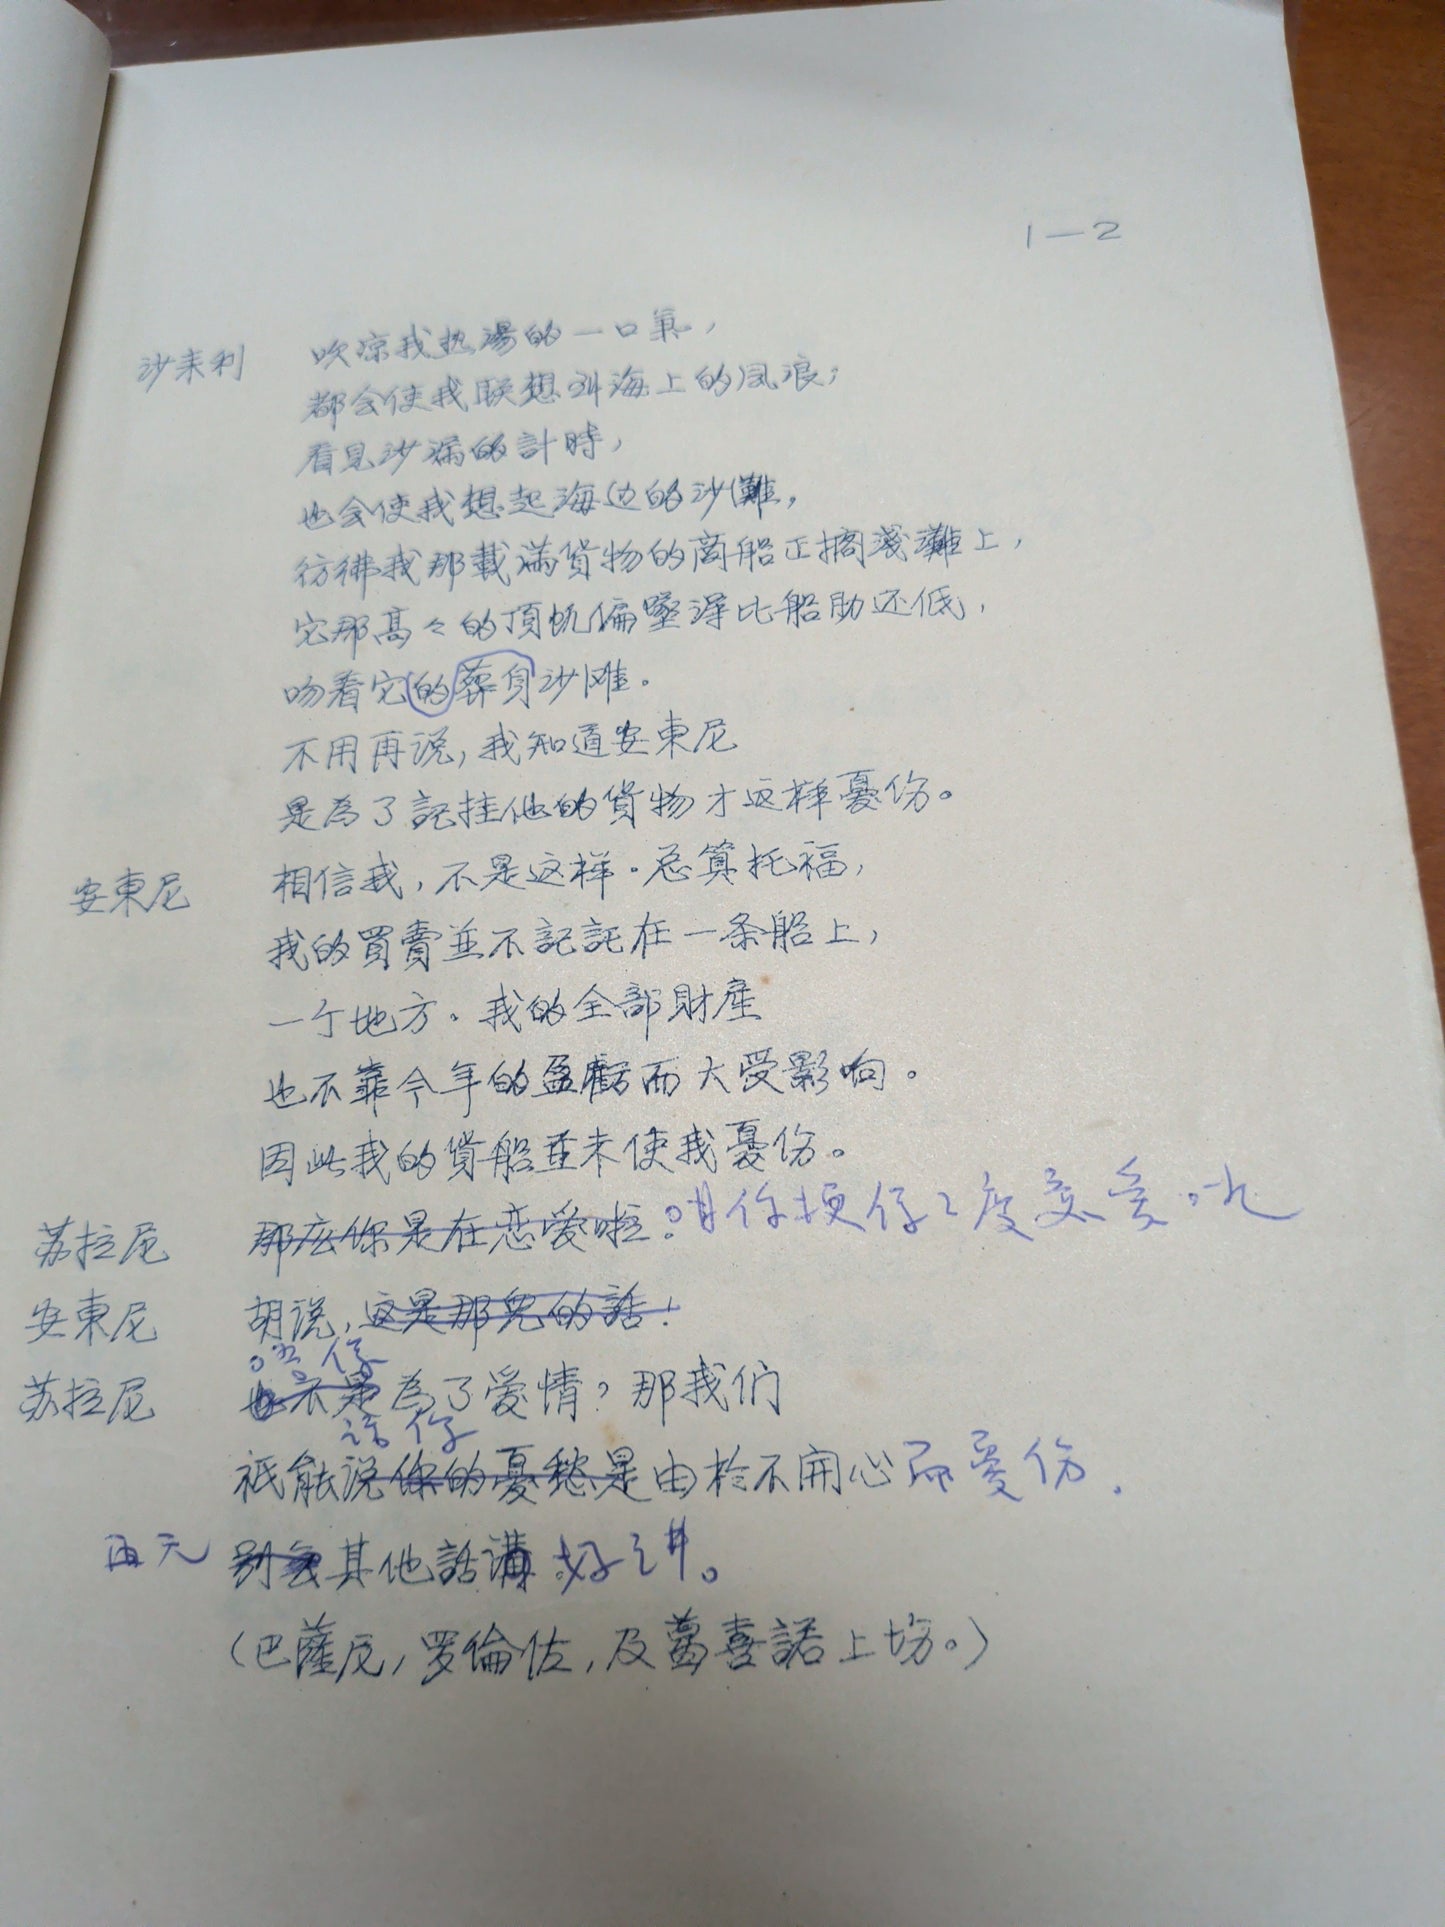 1—2
沙来利 吹凉我热湯的一口氣，
都会使我联想到海上的风浪；
看見沙漏的計時，
也会使我想起海边的沙灘，
彷彿我那載滿貨物的商船正擱淺灘上，
它那高々的頂帆偏墜得比船肋还低，
吻着它的葬身沙滩。
不用再说，我知道安東尼
是為了記挂他的貨物才这样憂伤。
安東尼 相信我，不是这样。总算托福，
我的買賣並不記託在一条船上，
一个地方。我的全部財產
也不靠今年的盈虧而大受影响。
因此我的貨船並未使我憂伤。
苏拉尼 那広你是在恋爱啦。咁你梗係
安東尼 胡说，这是那兒的話！
唔係
苏拉尼 也不是為了爱情？那我们
話你
祗能说你的憂愁是由於不開心而憂伤．
再无 别会其他話講好讲。
（巴薩尼，罗倫佐，及葛喜諾上場。）